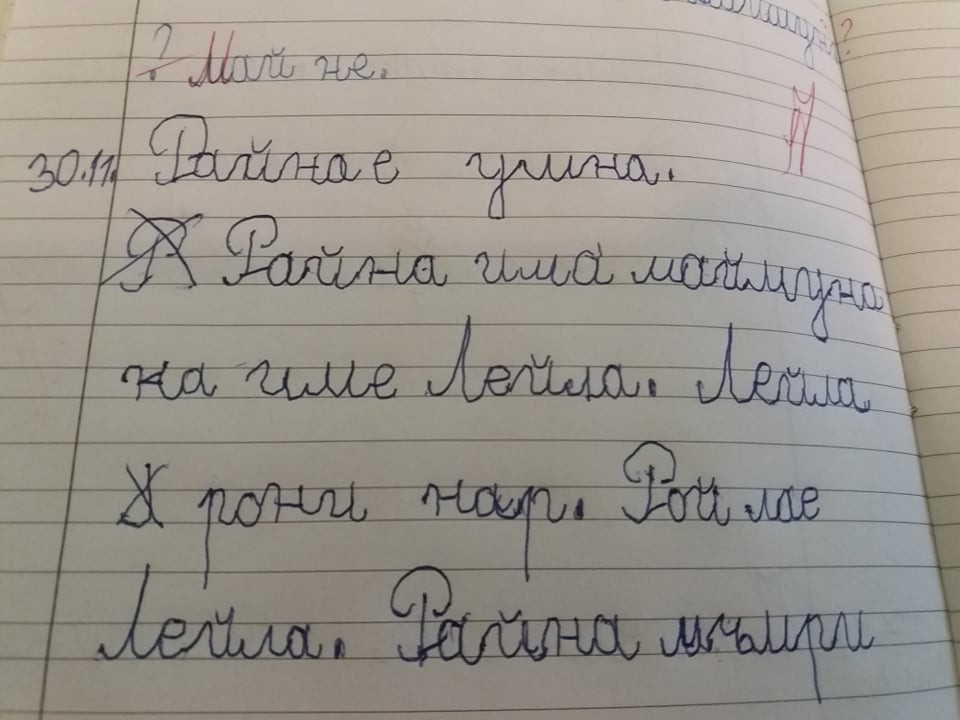 ? Май не.
Й
30.11. Райна е умна.
Райна има маймуна
на име Лейла. Лейла
рони нар. Рой лае
Лейла. Райна мъмри